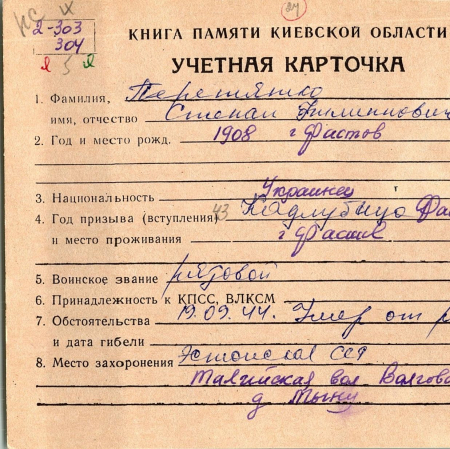 КС IX
24
2-303
304
я 5 я
КНИГА ПАМЯТИ КИЕВСКОЙ ОБЛАСТИ
УЧЕТНАЯ КАРТОЧКА
1. Фамилия,
имя, отчество Степан Филиппович
2. Год и место рожд. 1908 г Фастов
3. Национальность Украинец
4. Год призыва (вступления) 43
и место проживания г Фастов
5. Воинское звание рядовой
6. Принадлежность к КПСС, ВЛКСМ
7. Обстоятельства 19.09.44. Умер от р
и дата гибели
8. Место захоронения Эстонская ССР
вол
д